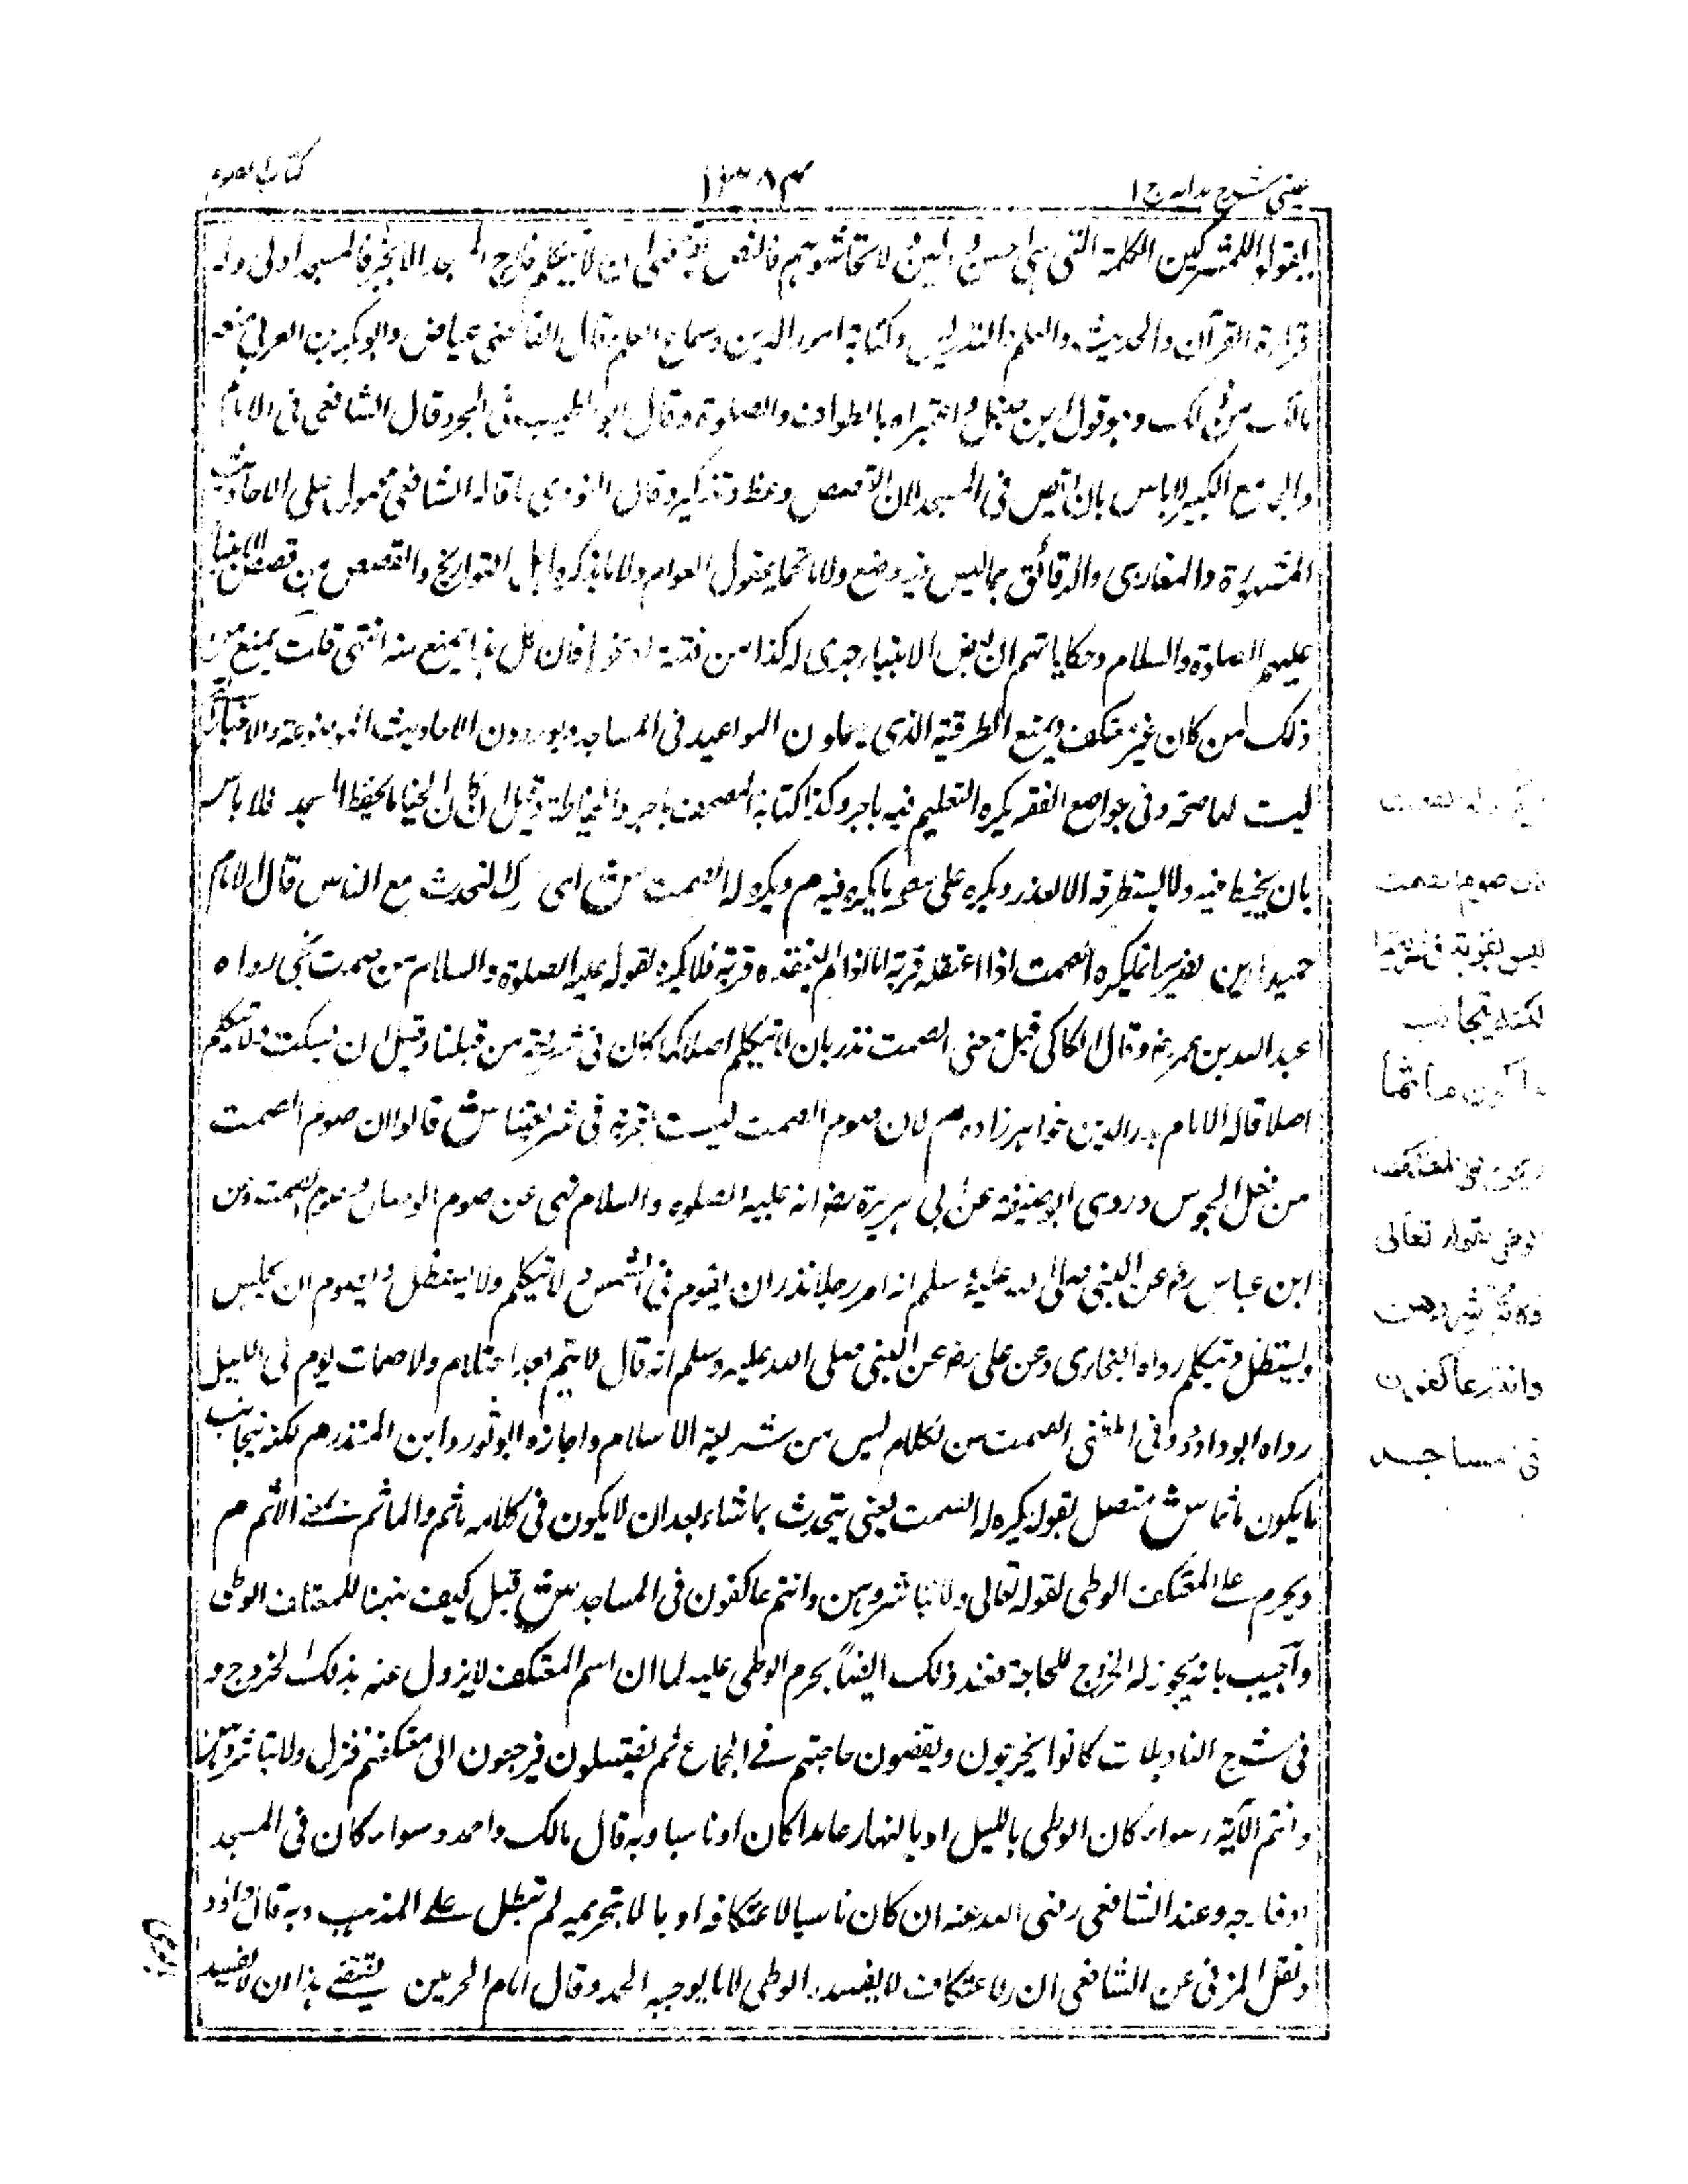 عينى شرح هدايه ج ١
١٣٨٤
كتاب الصوم
يقولوا للمشركين الكلمة التى هى احسن والين ولا يخاشنوهم فالنص يقتضى ان لا يتكلم خارج المسجد الا بخير فالمسجد اولى وله
قراءة القرآن والحديث والعلم والتدريس وكتابة امور الدين وسماع العلم وقال القاضى عياض وابو بكر بن العربى منعه
مالك وهو قول ابن حنبل واعتبراه بالطواف والصلوة وقال ابو الطيب فى المجرد قال الشافعى فى الام
والجامع الكبير لا باس بان يقص فى المسجد لان القصص وعظ وتذكير وقال النووى ما قاله الشافعى محمول على الاحاديث
المشهورة والمغازى والرقائق مما ليس فيه وضع ولا ما تحمله عقول العوام ولا ما يذكره اهل التواريخ والقصص من قصص الانبياء
عليهم الصلوة والسلام وحكاياتهم ان بعض الانبياء جرى له كذا من فتنة او نحوها فان كل هذا يمنع منه انتهى قلت يمنع من
ذلك من كان غير معتكف ويمنع الطرقية الذى يعملون المواعيد فى المساجد ويوردون الاحاديث الموضوعة والاخبار التى
ليست لها صحة وفى جوامع الفقه يكره التعليم فيه باجر وكذا كتابة المصحف باجر والخياطة وقيل ان كان الخياط يحفظ المسجد فلا باس
بان يخيط فيه ولا يستطرقه الا لعذر ويكره على سطحه ما يكره فيه م ويكره له الصمت ش اى ترك التحدث مع الناس قال الامام
حميد الدين الضرير انما يكره الصمت اذا اعتقده قربة اما اذا لم يعتقده قربة فلا يكره لقوله عليه الصلوة والسلام من صمت نجى رواه
عبد الله بن عمر رض وقال الكاكى قيل معنى الصمت نذر بان لا يتكلم اصلا كما كان فى شريعة من قبلنا وقيل ان يسكت ولا يتكلم
اصلا قاله الامام بدر الدين خواهر زاده م لان صوم الصمت ليست بقربة فى شريعتنا ش قالوا ان صوم الصمت
من فعل المجوس وروى ابو حنيفة عن ابى هريرة رض انه عليه الصلوة والسلام نهى عن صوم الوصال وصوم الصمت وعن
ابن عباس رض عن النبى صلى الله عليه وسلم انه امر رجلا نذر ان يقوم فى الشمس ولا يتكلم ولا يستظل ويصوم ان يجلس
ويستظل ويتكلم رواه البخارى وعن على رض عن النبى صلى الله عليه وسلم انه قال لا يتم بعد احتلام ولا صمات يوم الى الليل
رواه ابو داؤد وفى المغنى الصمت من الكلام ليس من شريعة الاسلام واجازه ابو ثور وابن المنذر م لكنه يتجانب
ما يكون ماثما ش متصل بقوله يكره له الصمت يعنى يتحدث بما شاء بعد ان لا يكون فى كلامه ماثم والماثم بمعنى الاثم م
ويحرم على المعتكف الوطى لقوله تعالى ولا تباشروهن وانتم عاكفون فى المساجد ش قيل كيف يتهيأ للمعتكف الوطى
واجيب بانه يجوز له الخروج للحاجة فعند ذلك ايضاً يحرم الوطى عليه لما ان اسم المعتكف لا يزول عنه بذلك الخروج و
فى شرح التاويلات كانوا يخرجون ويقضون حاجتهم فى الجماع ثم يغتسلون فيرجعون الى معتكفهم فنزل ولا تباشروهن
وانتم الآية وسواء كان الوطى بالليل او بالنهار عامدا كان او ناسيا وبه قال مالك واحمد وسواء كان فى المسجد
او خارجه وعند الشافعى رضى الله عنه ان كان ناسيا لاعتكافه او جاهلا بتحريمه لم تبطل على المذهب وبه قال داؤد
ونقل المزنى عن الشافعى ان الاعتكاف لا يفسده الوطى الا ما يوجبه الحد وقال امام الحرمين يقتضى هذا ان لا يفسد
ويكره له الصمت
لان صوم الصمت
ليس بقربة فى شريعتنا
لكنه يتجانب
ما يكون ماثما
ويحرم على المعتكف
الوطى لقوله تعالى
ولا تباشروهن
وانتم عاكفون
فى المساجد